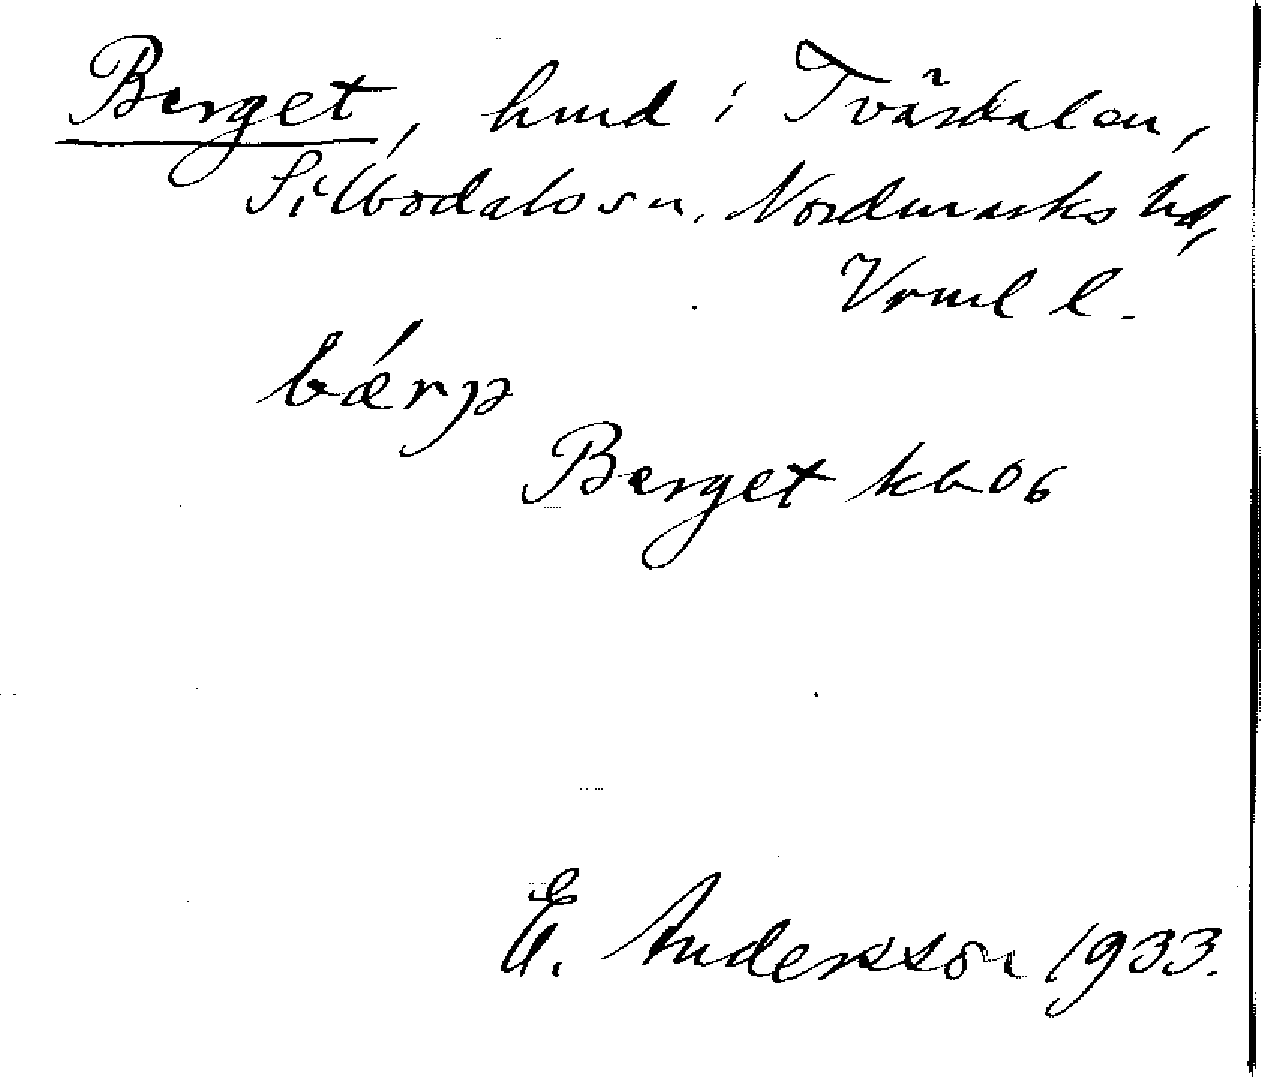 Berget, hmd i Tvärdalen,
Silbodals sn, Nordmarks hd,
Vrml l.
bǽrjə
Berget kb 06
E. Andersson 1933.